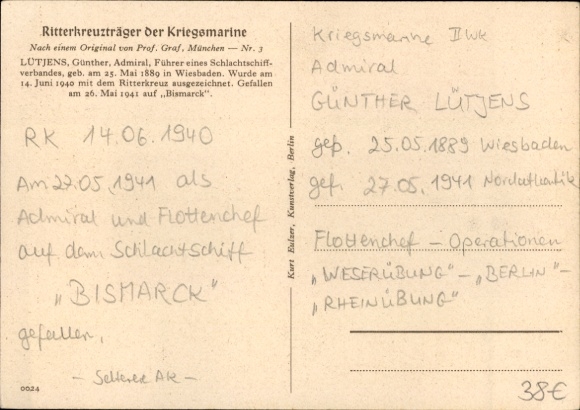 Ritterkreuzträger der Kriegsmarine
Nach einem Original von Prof. Graf, München — Nr. 3
LÜTJENS, Günther, Admiral, Führer eines Schlachtschiff-
verbandes, geb. am 25. Mai 1889 in Wiesbaden. Wurde am
14. Juni 1940 mit dem Ritterkreuz ausgezeichnet. Gefallen
am 26. Mai 1941 auf „Bismarck".
RK 14.06.1940
Am 27.05.1941 als
Admiral und Flottenchef
auf dem Schlachtschiff
„BISMARCK"
gefallen.
— Seltene AK —
0024
Kurt Eulzer, Kunstverlag, Berlin
Kriegsmarine II WK
Admiral
GÜNTHER LÜTJENS
geb. 25.05.1889 Wiesbaden
gef. 27.05.1941 Nordatlantik
Flottenchef – Operationen
„WESERÜBUNG" – „BERLIN" –
„RHEINÜBUNG"
38€